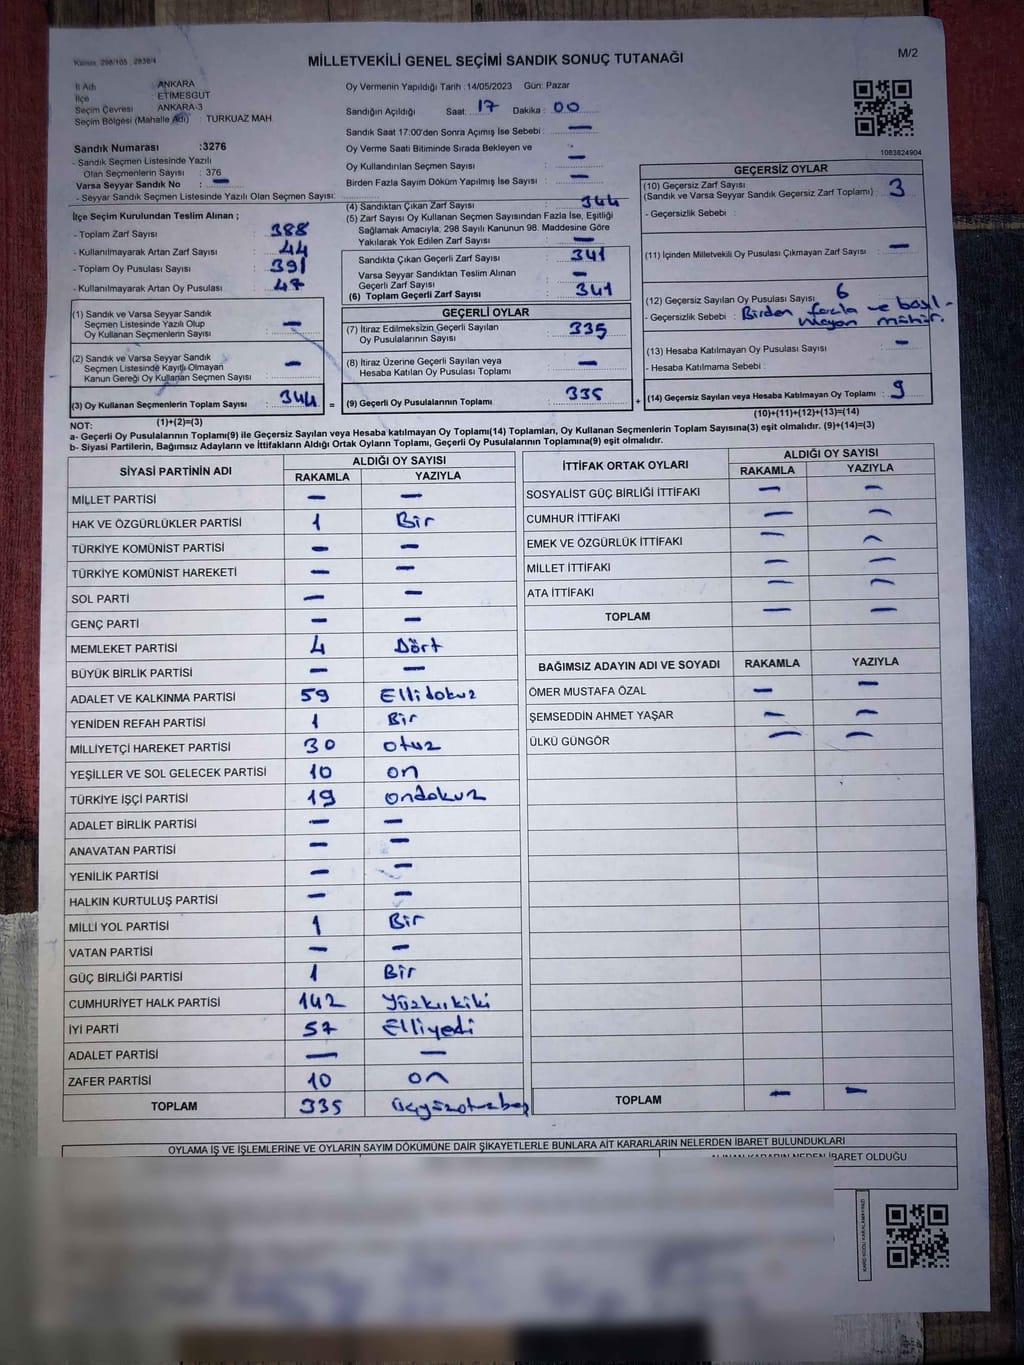 MİLLETVEKİLİ GENEL SEÇİMİ SANDIK SONUÇ TUTANAĞI
M/2
İl Adı : ANKARA
İlçe : ETİMESGUT
Seçim Çevresi : ANKARA-3
Seçim Bölgesi (Mahalle Adı) : TURKUAZ MAH.
Sandık Numarası :3276
- Sandık Seçmen Listesinde Yazılı
Olan Seçmenlerin Sayısı : 376
Varsa Seyyar Sandık No : —
- Seyyar Sandık Seçmen Listesinde Yazılı Olan Seçmen Sayısı:
Oy Vermenin Yapıldığı Tarih :14/05/2023 Gün: Pazar
Sandığın Açıldığı Saat: 17 Dakika : 00
Sandık Saat 17:00'den Sonra Açımış İse Sebebi : —
Oy Verme Saati Bitiminde Sırada Bekleyen ve
Oy Kullandırılan Seçmen Sayısı : —
Birden Fazla Sayım Döküm Yapılmış İse Sayısı : —
1083824904
İlçe Seçim Kurulundan Teslim Alınan ;
- Toplam Zarf Sayısı : 388
- Kullanılmayarak Artan Zarf Sayısı : 44
- Toplam Oy Pusulası Sayısı : 391
- Kullanılmayarak Artan Oy Pusulası : 47
(1) Sandık ve Varsa Seyyar Sandık
Seçmen Listesinde Yazılı Olup
Oy Kullanan Seçmenlerin Sayısı : —
(2) Sandık ve Varsa Seyyar Sandık
Seçmen Listesinde Kayıtlı Olmayan
Kanun Gereği Oy Kullanan Seçmen Sayısı : —
(3) Oy Kullanan Seçmenlerin Toplam Sayısı : 344 =
(1)+(2)=(3)
(4) Sandıktan Çıkan Zarf Sayısı : 344
(5) Zarf Sayısı Oy Kullanan Seçmen Sayısından Fazla İse, Eşitliği
Sağlamak Amacıyla, 298 Sayılı Kanunun 98. Maddesine Göre
Yakılarak Yok Edilen Zarf Sayısı : —
Sandıkta Çıkan Geçerli Zarf Sayısı : 341
Varsa Seyyar Sandıktan Teslim Alınan
Geçerli Zarf Sayısı : —
(6) Toplam Geçerli Zarf Sayısı : 341
GEÇERLİ OYLAR
(7) İtiraz Edilmeksizin Geçerli Sayılan
Oy Pusulalarının Sayısı : 335
(8) İtiraz Üzerine Geçerli Sayılan veya
Hesaba Katılan Oy Pusulası Toplamı : —
(9) Geçerli Oy Pusulalarının Toplamı : 335 +
GEÇERSİZ OYLAR
(10) Geçersiz Zarf Sayısı
(Sandık ve Varsa Seyyar Sandık Geçersiz Zarf Toplamı) : 3
- Geçersizlik Sebebi :
(11) İçinden Milletvekili Oy Pusulası Çıkmayan Zarf Sayısı : —
(12) Geçersiz Sayılan Oy Pusulası Sayısı : 6
- Geçersizlik Sebebi : Birden fazla ve basıl-
mayan mühür.
(13) Hesaba Katılmayan Oy Pusulası Sayısı : —
- Hesaba Katılmama Sebebi :
(14) Geçersiz Sayılan veya Hesaba Katılmayan Oy Toplamı : 9
(10)+(11)+(12)+(13)=(14)
NOT:
a- Geçerli Oy Pusulalarının Toplamı(9) ile Geçersiz Sayılan veya Hesaba katılmayan Oy Toplamı(14) Toplamları, Oy Kullanan Seçmenlerin Toplam Sayısına(3) eşit olmalıdır. (9)+(14)=(3)
b- Siyasi Partilerin, Bağımsız Adayların ve İttifakların Aldığı Ortak Oyların Toplamı, Geçerli Oy Pusulalarının Toplamına(9) eşit olmalıdır.
SİYASİ PARTİNİN ADI ALDIĞI OY SAYISI
RAKAMLA YAZIYLA
MİLLET PARTİSİ — —
HAK VE ÖZGÜRLÜKLER PARTİSİ 1 Bir
TÜRKİYE KOMÜNİST PARTİSİ — —
TÜRKİYE KOMÜNİST HAREKETİ — —
SOL PARTİ — —
GENÇ PARTİ — —
MEMLEKET PARTİSİ 4 Dört
BÜYÜK BİRLİK PARTİSİ — —
ADALET VE KALKINMA PARTİSİ 59 Ellidokuz
YENİDEN REFAH PARTİSİ 1 Bir
MİLLİYETÇİ HAREKET PARTİSİ 30 otuz
YEŞİLLER VE SOL GELECEK PARTİSİ 10 on
TÜRKİYE İŞÇİ PARTİSİ 19 ondokuz
ADALET BİRLİK PARTİSİ — —
ANAVATAN PARTİSİ — —
YENİLİK PARTİSİ — —
HALKIN KURTULUŞ PARTİSİ — —
MİLLİ YOL PARTİSİ 1 Bir
VATAN PARTİSİ — —
GÜÇ BİRLİĞİ PARTİSİ 1 Bir
CUMHURİYET HALK PARTİSİ 142 Yüzkırkiki
İYİ PARTİ 57 Elliyedi
ADALET PARTİSİ — —
ZAFER PARTİSİ 10 on
TOPLAM 335 Üçyüzotuzbeş
İTTİFAK ORTAK OYLARI ALDIĞI OY SAYISI
RAKAMLA YAZIYLA
SOSYALİST GÜÇ BİRLİĞİ İTTİFAKI — —
CUMHUR İTTİFAKI — —
EMEK VE ÖZGÜRLÜK İTTİFAKI — —
MİLLET İTTİFAKI — —
ATA İTTİFAKI — —
TOPLAM — —
BAĞIMSIZ ADAYIN ADI VE SOYADI RAKAMLA YAZIYLA
ÖMER MUSTAFA ÖZAL — —
ŞEMSEDDİN AHMET YAŞAR — —
ÜLKÜ GÜNGÖR — —
TOPLAM — —
OYLAMA İŞ VE İŞLEMLERİNE VE OYLARIN SAYIM DÖKÜMÜNE DAİR ŞİKAYETLERLE BUNLARA AİT KARARLARIN NELERDEN İBARET BULUNDUKLARI
ALINAN KARARIN NEDEN İBARET OLDUĞU